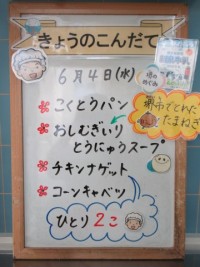 きょうのこんだて
6月4日(水)
堺市でとれた
たまねぎ
こくとうパン
おしむぎいり
とうにゅうスープ
チキンナゲット
コーンキャベツ
ひとり2こ